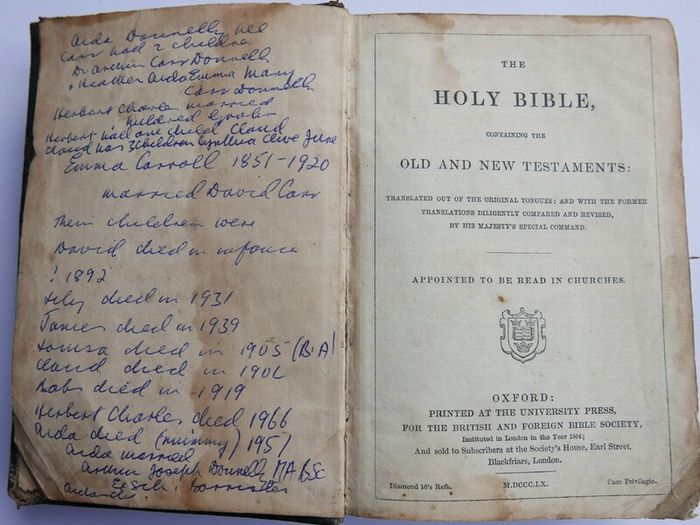 Aida Donnelly nee
Carr had 2 children
Dr Archie Carr Donnelly
+ Heather Aida Emma Mary
Carr Donnelly
Herbert Charles married
Mildred
Herbert had one child Claud
Claud has 3 children Cynthia Clive June
Emma Carroll 1851-1920
married David Carr
Their children were
David died in infancy
? 1892
Lily died in 1931
James died in 1939
Louisa died in 1905 (B.A)
Claud died in 1906
Babs died in 1919
Herbert Charles died 1966
Aida died (mummy) 1951
Aida married
Joseph Donnelly MA BSc
Barrister
THE
HOLY BIBLE,
CONTAINING THE
OLD AND NEW TESTAMENTS:
TRANSLATED OUT OF THE ORIGINAL TONGUES; AND WITH THE FORMER
TRANSLATIONS DILIGENTLY COMPARED AND REVISED,
BY HIS MAJESTY'S SPECIAL COMMAND.
APPOINTED TO BE READ IN CHURCHES.
OXFORD:
PRINTED AT THE UNIVERSITY PRESS,
FOR THE BRITISH AND FOREIGN BIBLE SOCIETY,
Instituted in London in the Year 1804;
And sold to Subscribers at the Society's House, Earl Street,
Blackfriars, London.
Diamond 16's Refs. M.DCCC.LX. Cum Privilegio.